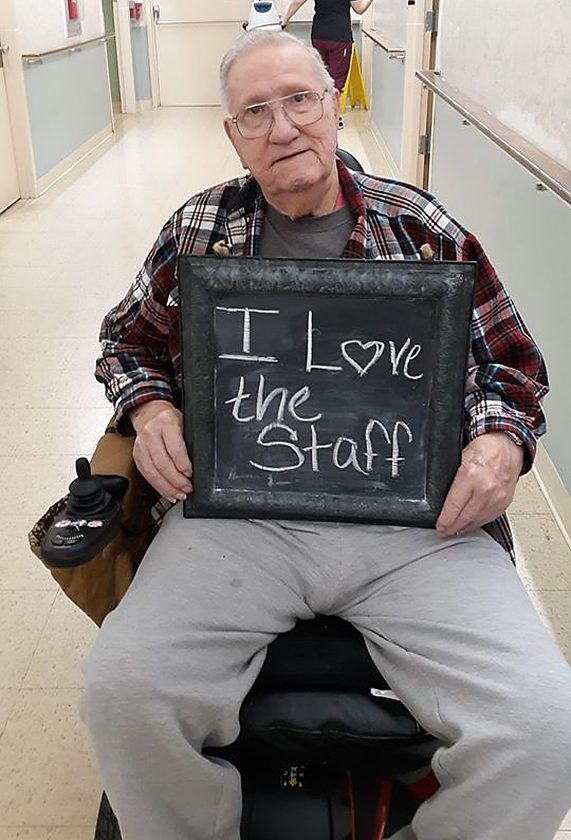 I L♡ve
the
Staff